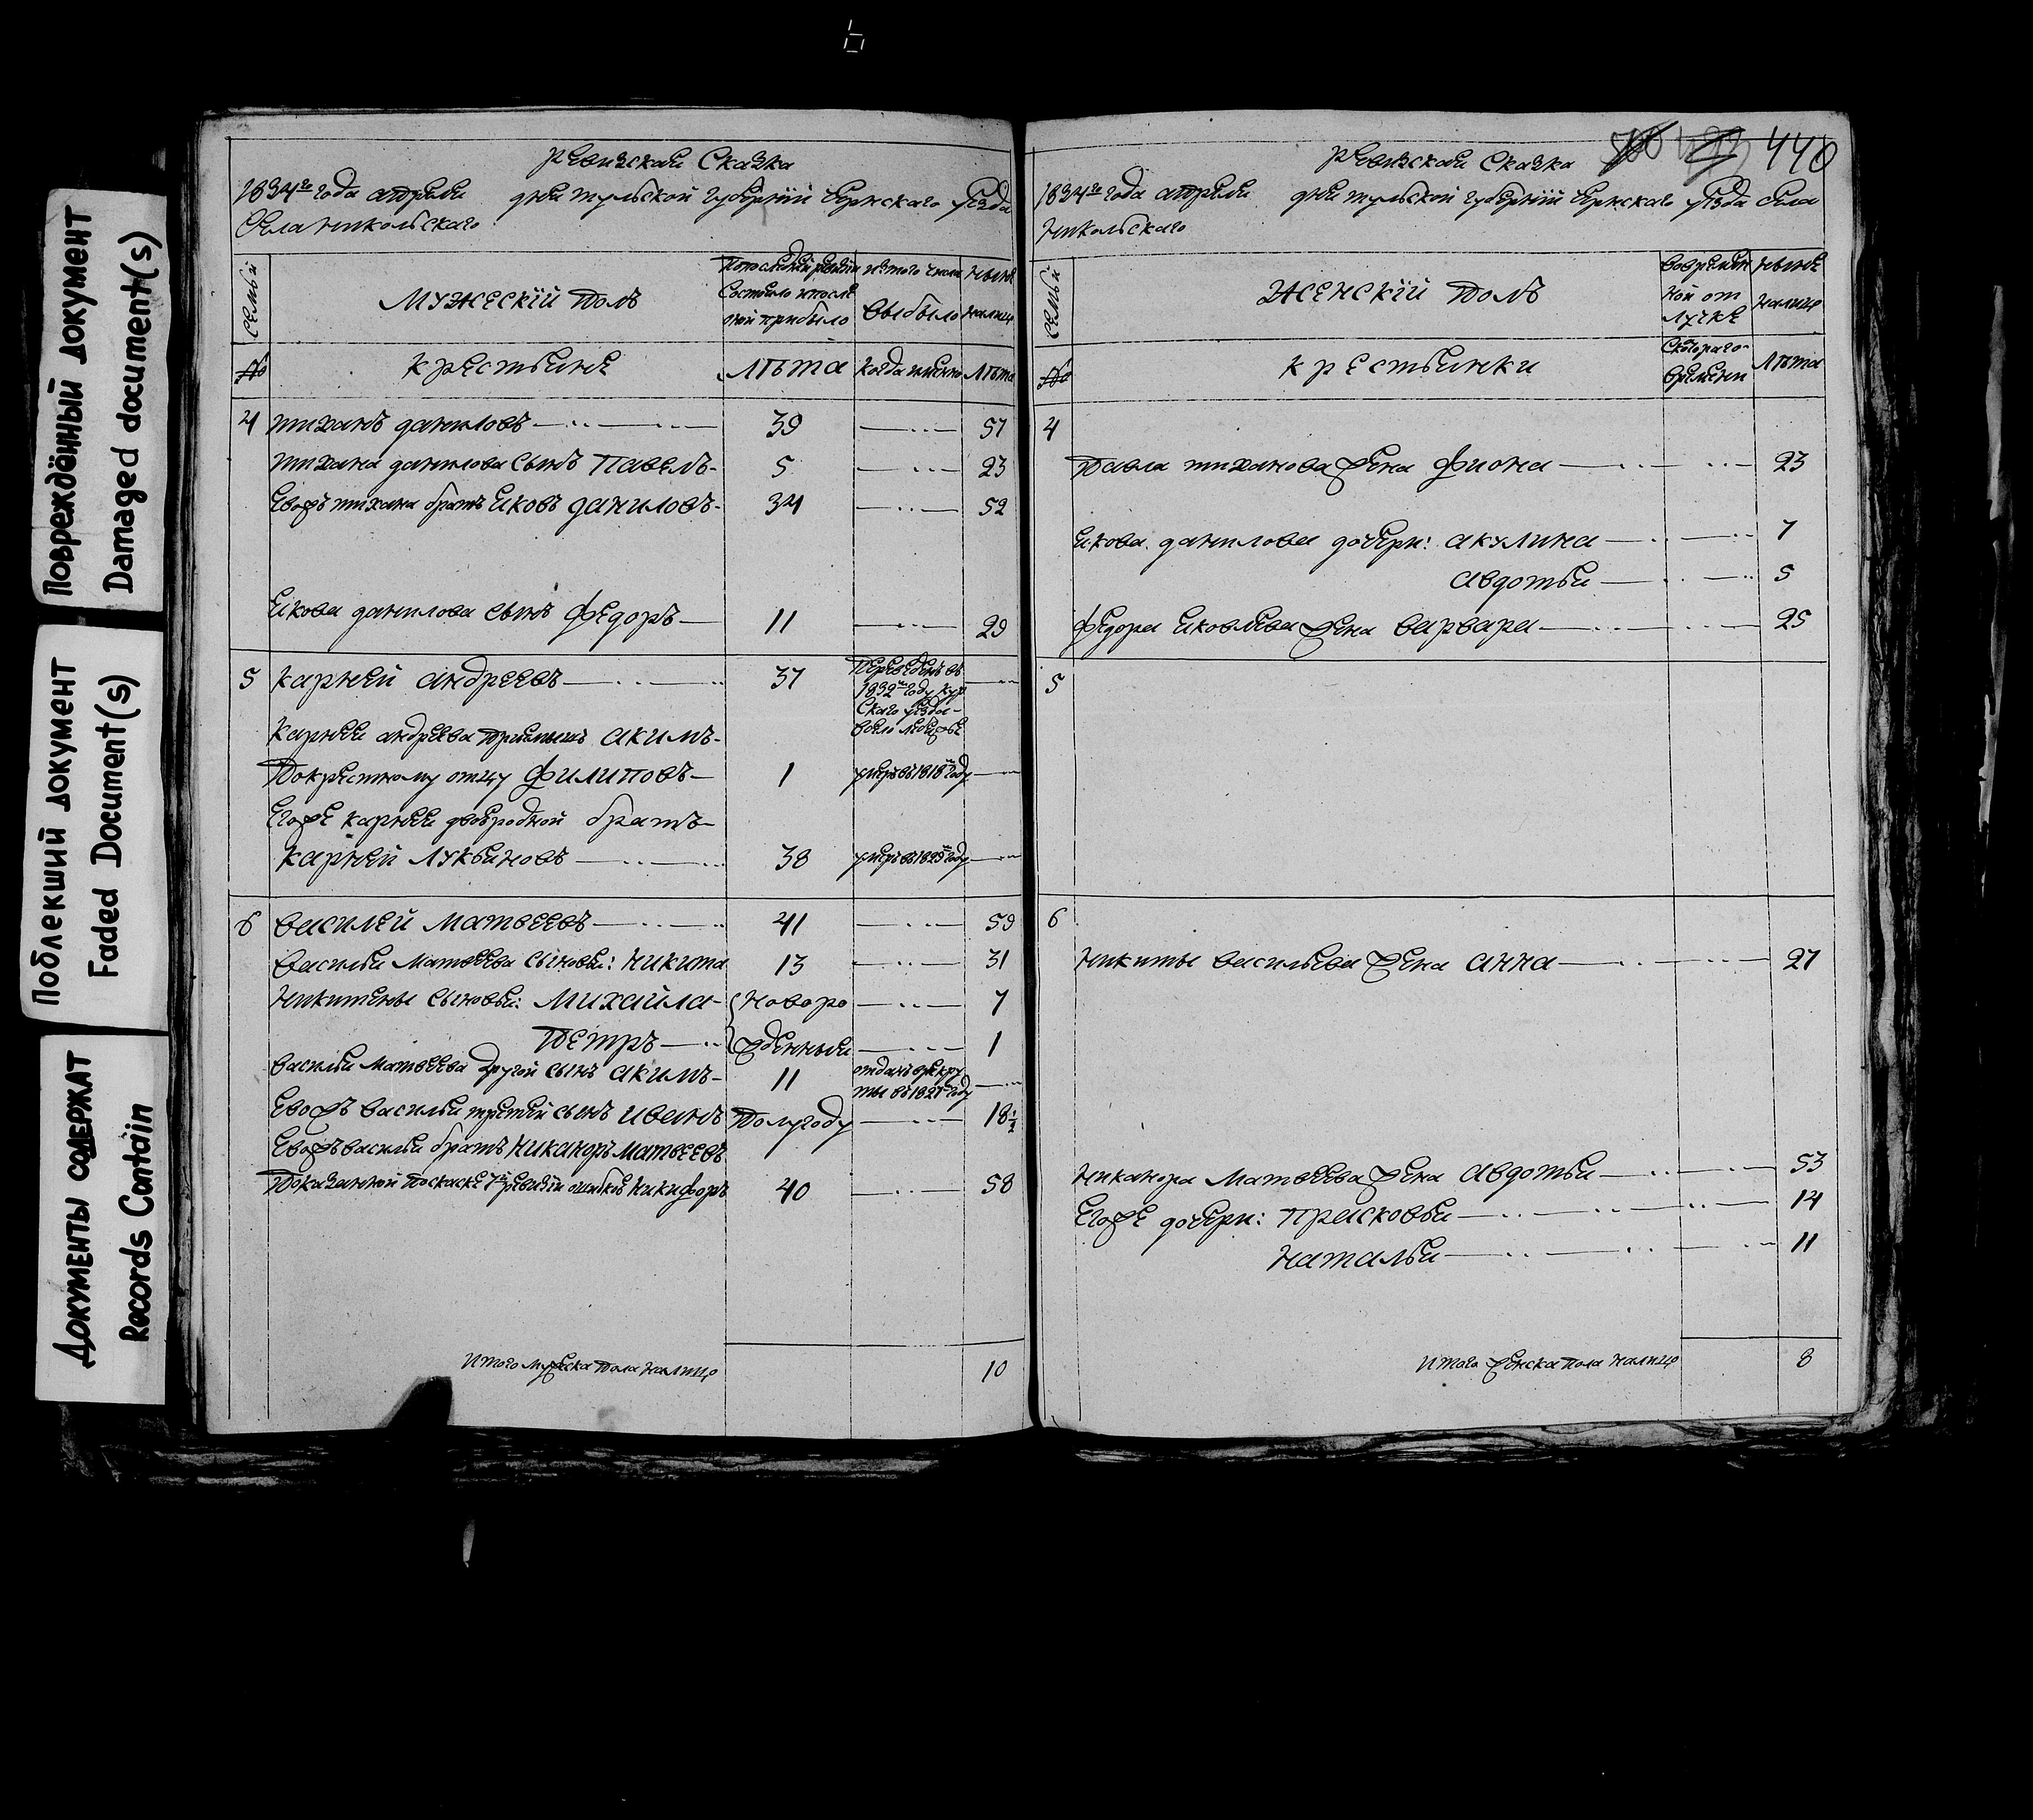 Повреждённый документ
Damaged document(s)
Поблекший документ
Faded Document(s)
Документы содержат
Records Contain
Ревизская Сказка
1834го года апреля дня тульской губернiи Чернскаго уѣзда
Села никольскаго
Семьи
Мужескiй полъ
Попоследней ревизiи
Состояло ипосле
оной прибыло
изтого числа
выбыло
ныне
налицо
№
крестьяне
Лѣта
когда имянно
Лѣта
4 тиханъ даниловъ 39 57
тихана данилова сынъ Павелъ 5 23
Евожъ тихана братъ Яковъ даниловъ 34 52
Якова данилова сынъ Федоръ 11 29
5 карней андреевъ 37 Переведенъ въ
1832м году кур
Скаго уезда
карнея андреева приемышъ акимъ
Покрестному отцу Филиповъ 1 умеръ въ 1818м году
Егоже карнея двоюродной братъ
карней Лукьяновъ 38 умеръ въ 1825м году
6 василей матвеевъ 41 59
василья матвеева сыновья: никита 13 31
никитены сыновья: Михайла Новоро 7
Петръ жденныя 1
василья матвеева другой сынъ акимъ 11 отданъ врекру
ты въ 1827м году
Евожъ василья третей сынъ иванъ Полугоду 18 1/2
Евожъ василья братъ никаноръ матвеевъ
Показанной поскаске 7й ревизiи ошибкою никифоръ 40 58
Итого мужеска пола налицо 10
Ревизская Сказка 440
1834го года апреля дня тульской губернiи Чернскаго уѣзда села
никольскаго
Семьи
Женскiй полъ
вовремян
ной от
лучке
ныне
налицо
№
крестьянки
Скотораго
времени
Лѣта
4
Павла тиханова жена Фиона 23
Якова данилова дочери: акулина 7
авдотья 5
Федора Яковлева жена варвара 25
5
6
никиты васильева жена анна 27
никанора матвеева жена авдотья 53
Егоже дочери: прасковья 14
наталья 11
Итого женска пола налицо 8